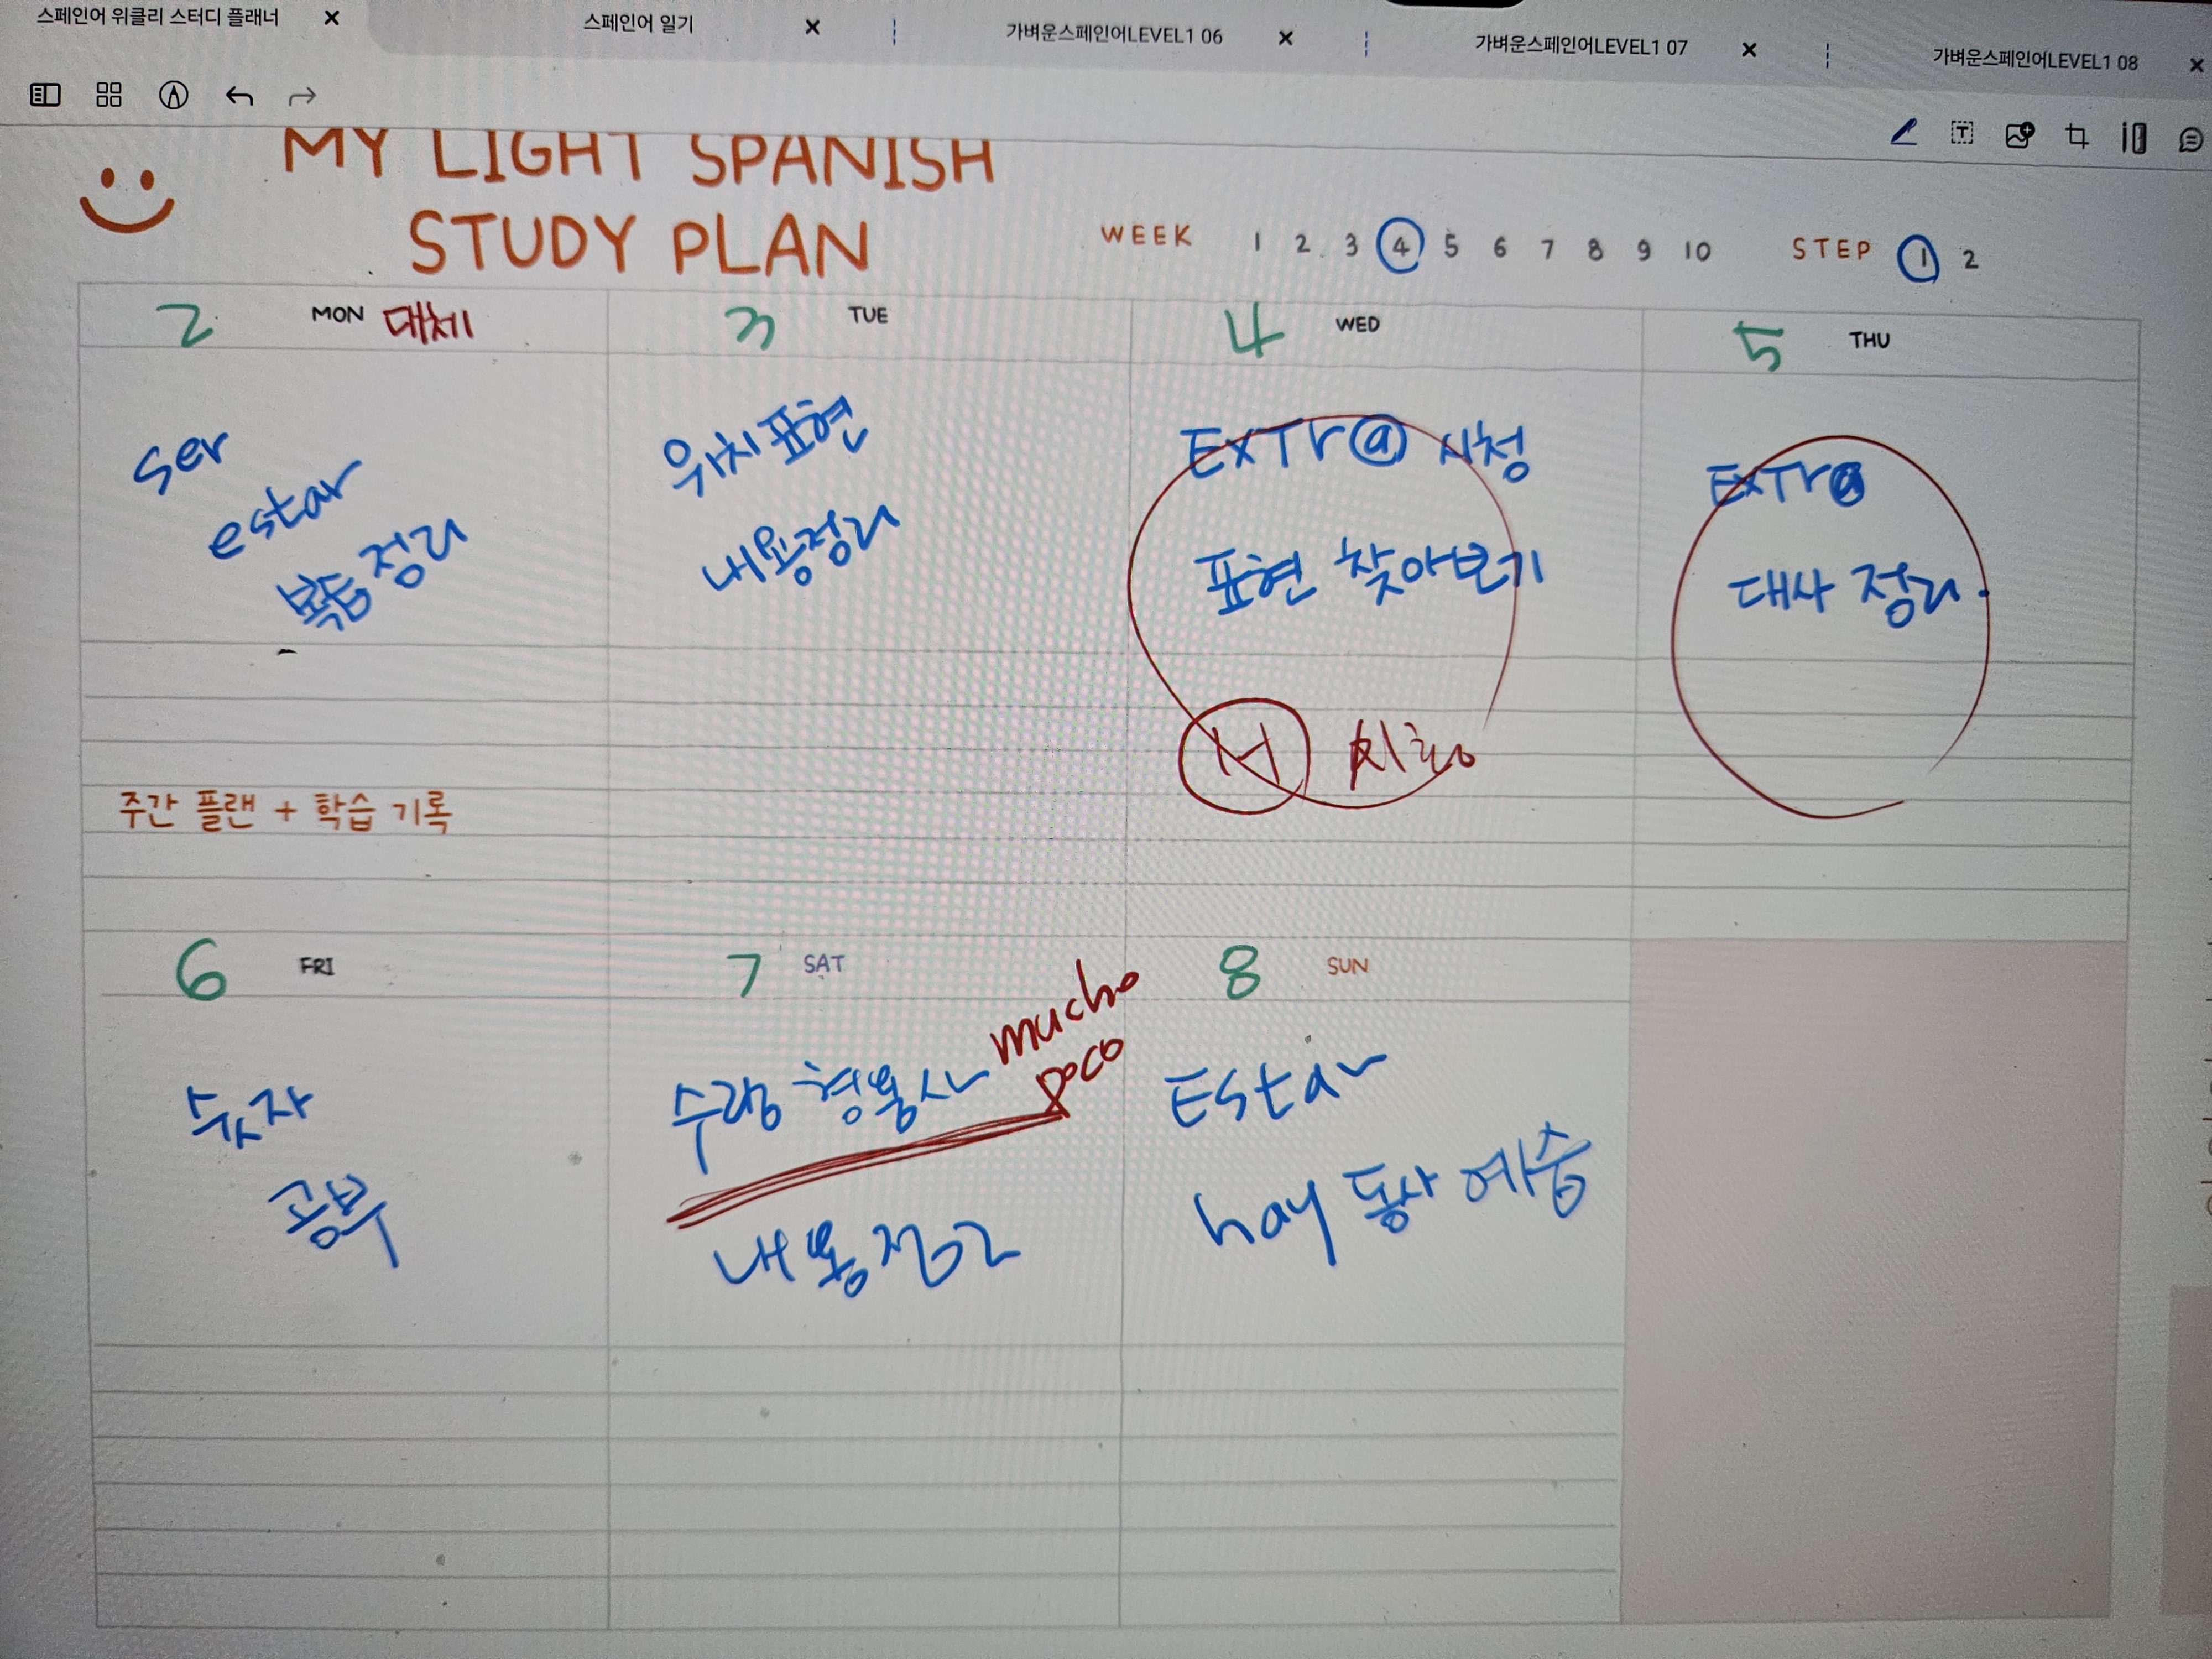 스페인어 위클리 스터디 플래너
스페인어 일기
가벼운스페인어LEVEL1 06
가벼운스페인어LEVEL1 07
가벼운스페인어LEVEL1 08
MY LIGHT SPANISH
STUDY PLAN
WEEK 1 2 3 4 5 6 7 8 9 10 STEP 1 2
2 MON 대체
ser
estar
복습 정리
3 TUE
위치표현
내용정리
4 WED
EXTr@ 시청
표현 찾아보기
5 THU
EXTr@
대사 정리.
주간 플랜 + 학습 기록
6 FRI
숫자
공부
7 SAT
수량 형용사
mucho
poco
내용정리
8 SUN
Estar
hay 동사 예습